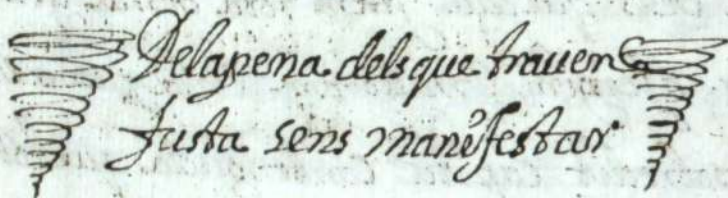 Delapena dels que trauen
fusta sens manifestar